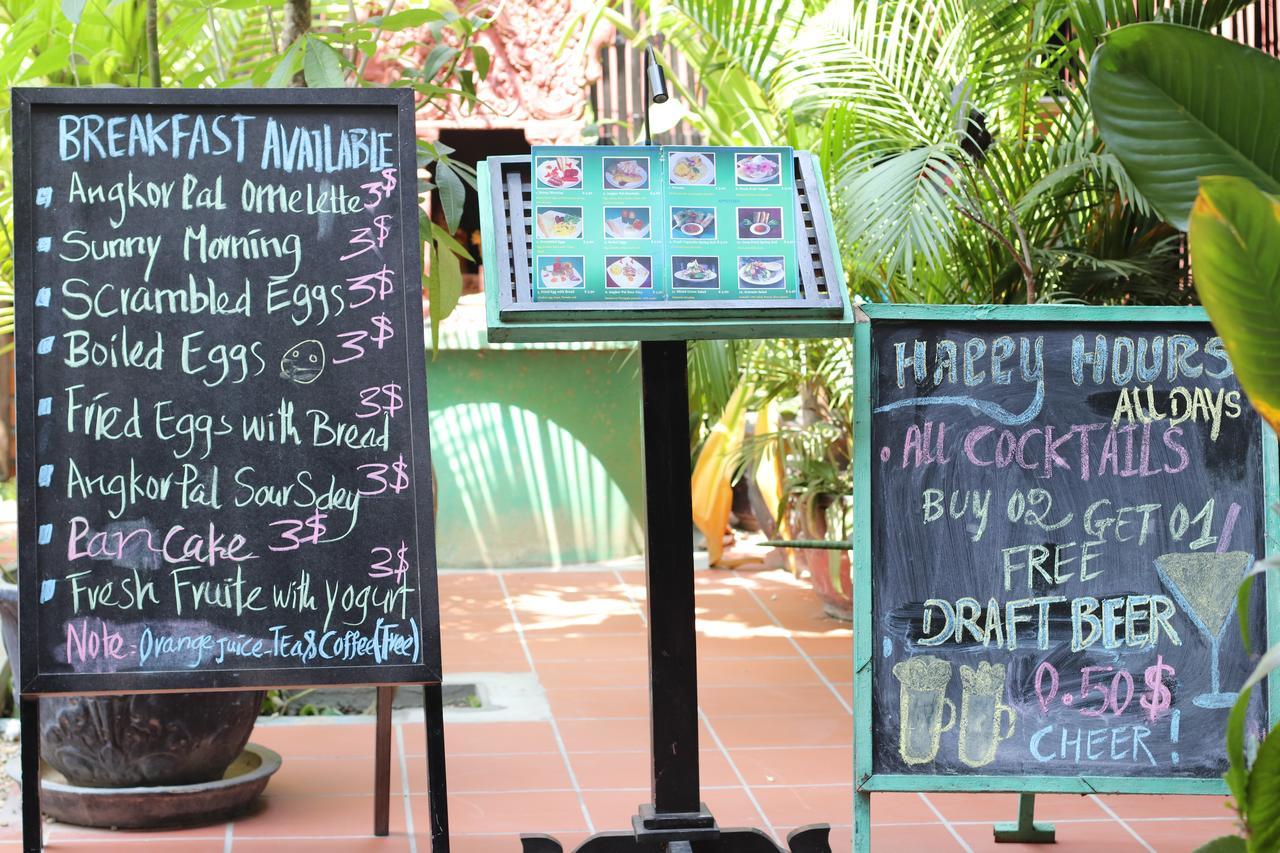 BREAKFAST AVAILABLE
Angkor Pal omelette 3$
Sunny Morning 3$
Scrambled Eggs 3$
Boiled Eggs 3$
Fried Eggs with Bread 3$
Angkor Pal SourSdey 3$
Pan Cake 3$
Fresh Fruite with yogurt 3$
Note: Orange juice_TEA&Coffee(Free)
HAPPY HOURS
ALL DAYS
ALL COCKTAILS
BUY 02 GET 01
FREE
DRAFT BEER
0.50$
CHEER !